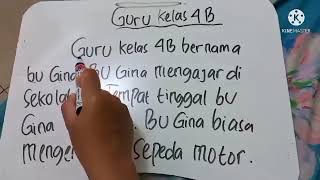 Guru kelas 4B
Guru kelas 4B bernama
bu Gina. BU Gina mengajar di
sekolah Tempat tinggal bu
Gina BU Gina biasa
menge sepeda motor.
KINEMASTER